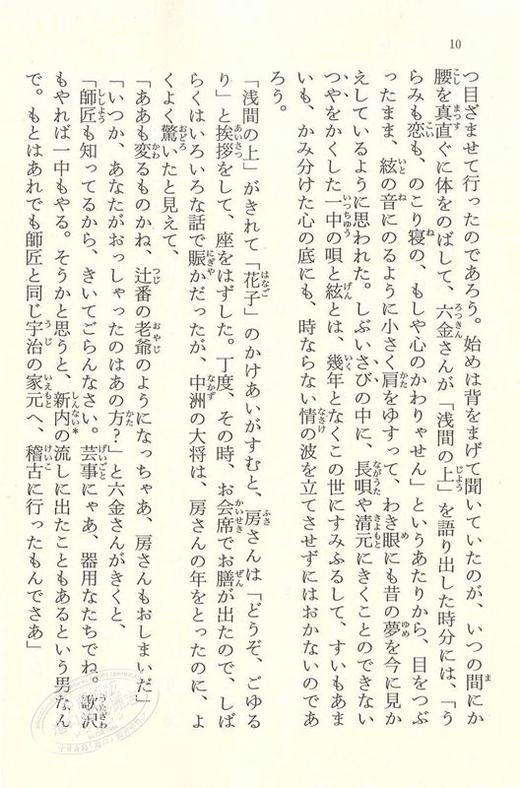 10
つ目ざませて行ったのであろう。始めは背をまげて聞いていたのが、いつの間にか
腰を真直ぐに体をのばして、六金さんが「浅間の上」を語り出した時分には、「う
らみも恋も、のこり寝の、もしや心のかわりゃせん」というあたりから、目をつぶ
ったまま、絃の音にのるように小さく肩をゆすって、わき眼にも昔の夢を今に見か
えしているように思われた。しぶいさびの中に、長唄や清元にきくことのできない
つやをかくした一中の唄と絃とは、幾年となくこの世にすみふるして、すいもあま
いも、かみ分けた心の底にも、時ならない情の波を立てさせずにはおかないのであ
ろう。
「浅間の上」がきれて「花子」のかけあいがすむと、房さんは「どうぞ、ごゆる
り」と挨拶をして、座をはずした。丁度、その時、お会席でお膳が出たので、しば
らくはいろいろな話で賑かだったが、中洲の大将は、房さんの年をとったのに、よ
くよく驚いたと見えて、
「ああも変るものかね、辻番の老爺のようになっちゃあ、房さんもおしまいだ」
「いつか、あなたがおっしゃったのはあの方？」と六金さんがきくと、
「師匠も知ってるから、きいてごらんなさい。芸事にゃあ、器用なたちでね。歌沢
もやれば一中もやる。そうかと思うと、新内*の流しに出たこともあるという男なん
で。もとはあれでも師匠と同じ宇治の家元へ、稽古に行ったもんでさあ」